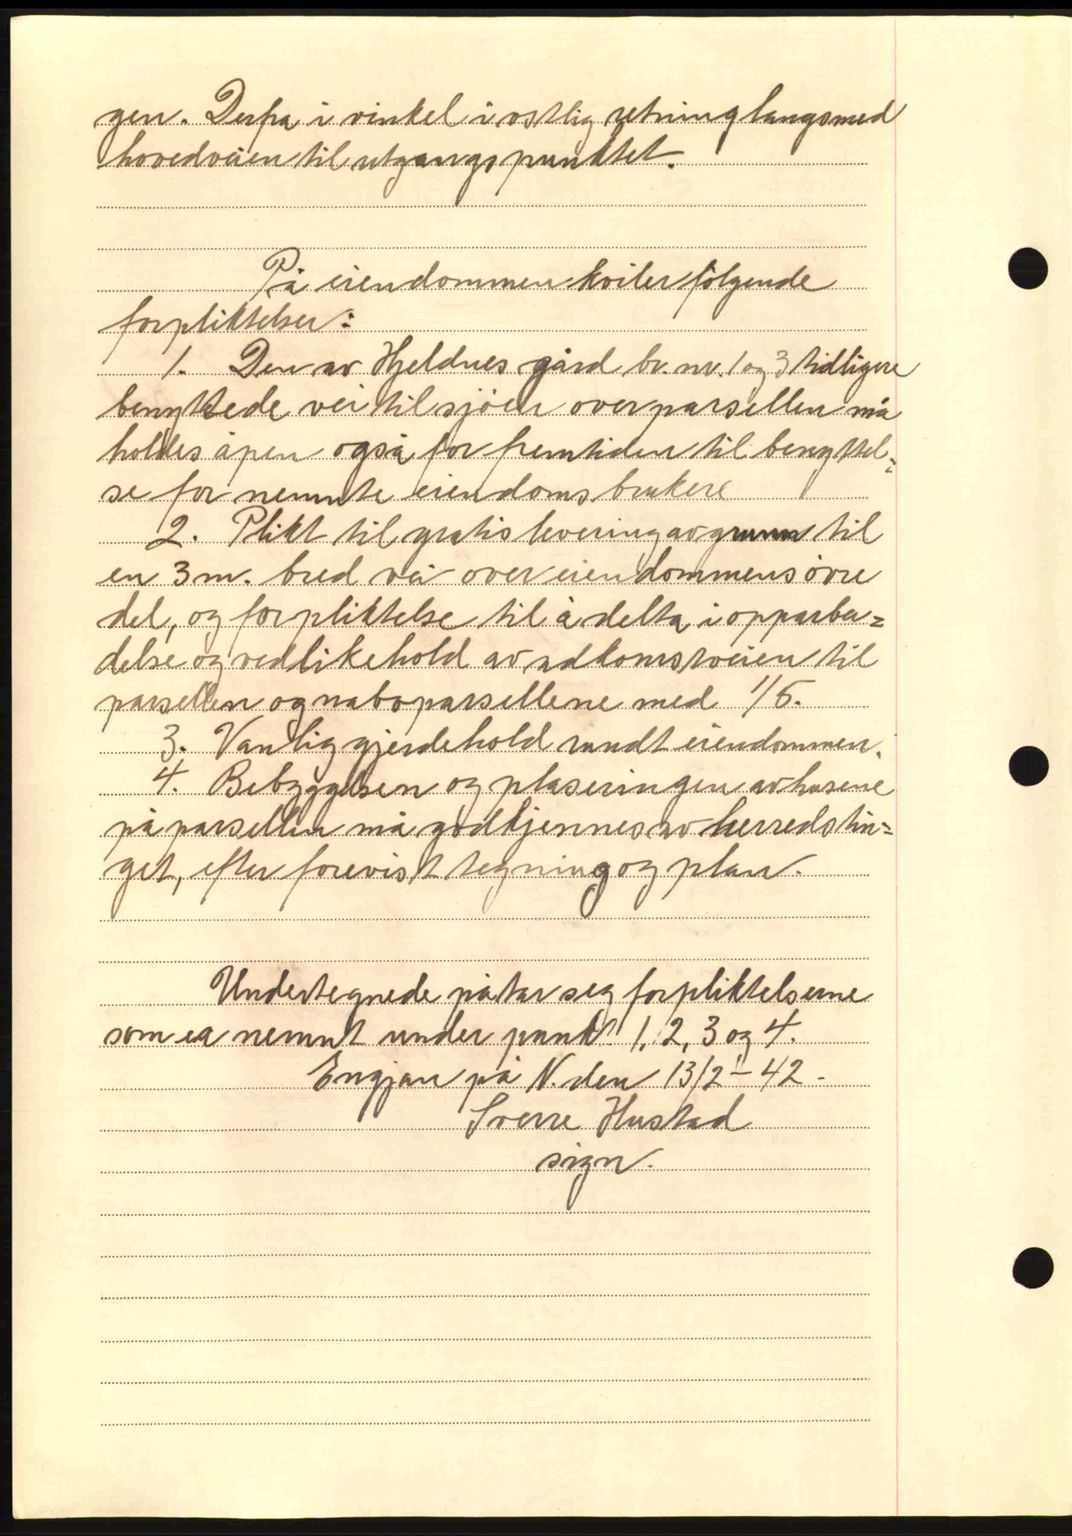 gen. Derfra i vinkel i østlig retning langsmed
hovedveien til utgangspunktet.
På eiendommen kviler følgende
forpliktelser:
1. Den av Hjeldnes gård br. nr. 1 og 3 tidligere
benyttede vei til sjøen over parsellen må
holdes åpen også for fremtiden til benyttel=
se for nemnte eiendoms brukere
2. Plikt til gratis levering av grunn til
en 3 m. bred vei over eiendommens øvre
del, og forpliktelse til å delta i opparbei=
delse og vedlikehold av adkomstveien til
parsellen og naboparsellene med 1/5.
3. Vanlig gjerdehold rundt eiendommen.
4. Bebyggelsen og plaseringen av husene
på parsellen må godkjennes av herredstin=
get, efter forevist tegning og plan.
Undertegnede påtar seg forpliktelserne
som er nemnt under punkt 1, 2, 3 og 4.
Engjan på N. den 13/2 - 42 -
Sverre Hustad
sign.